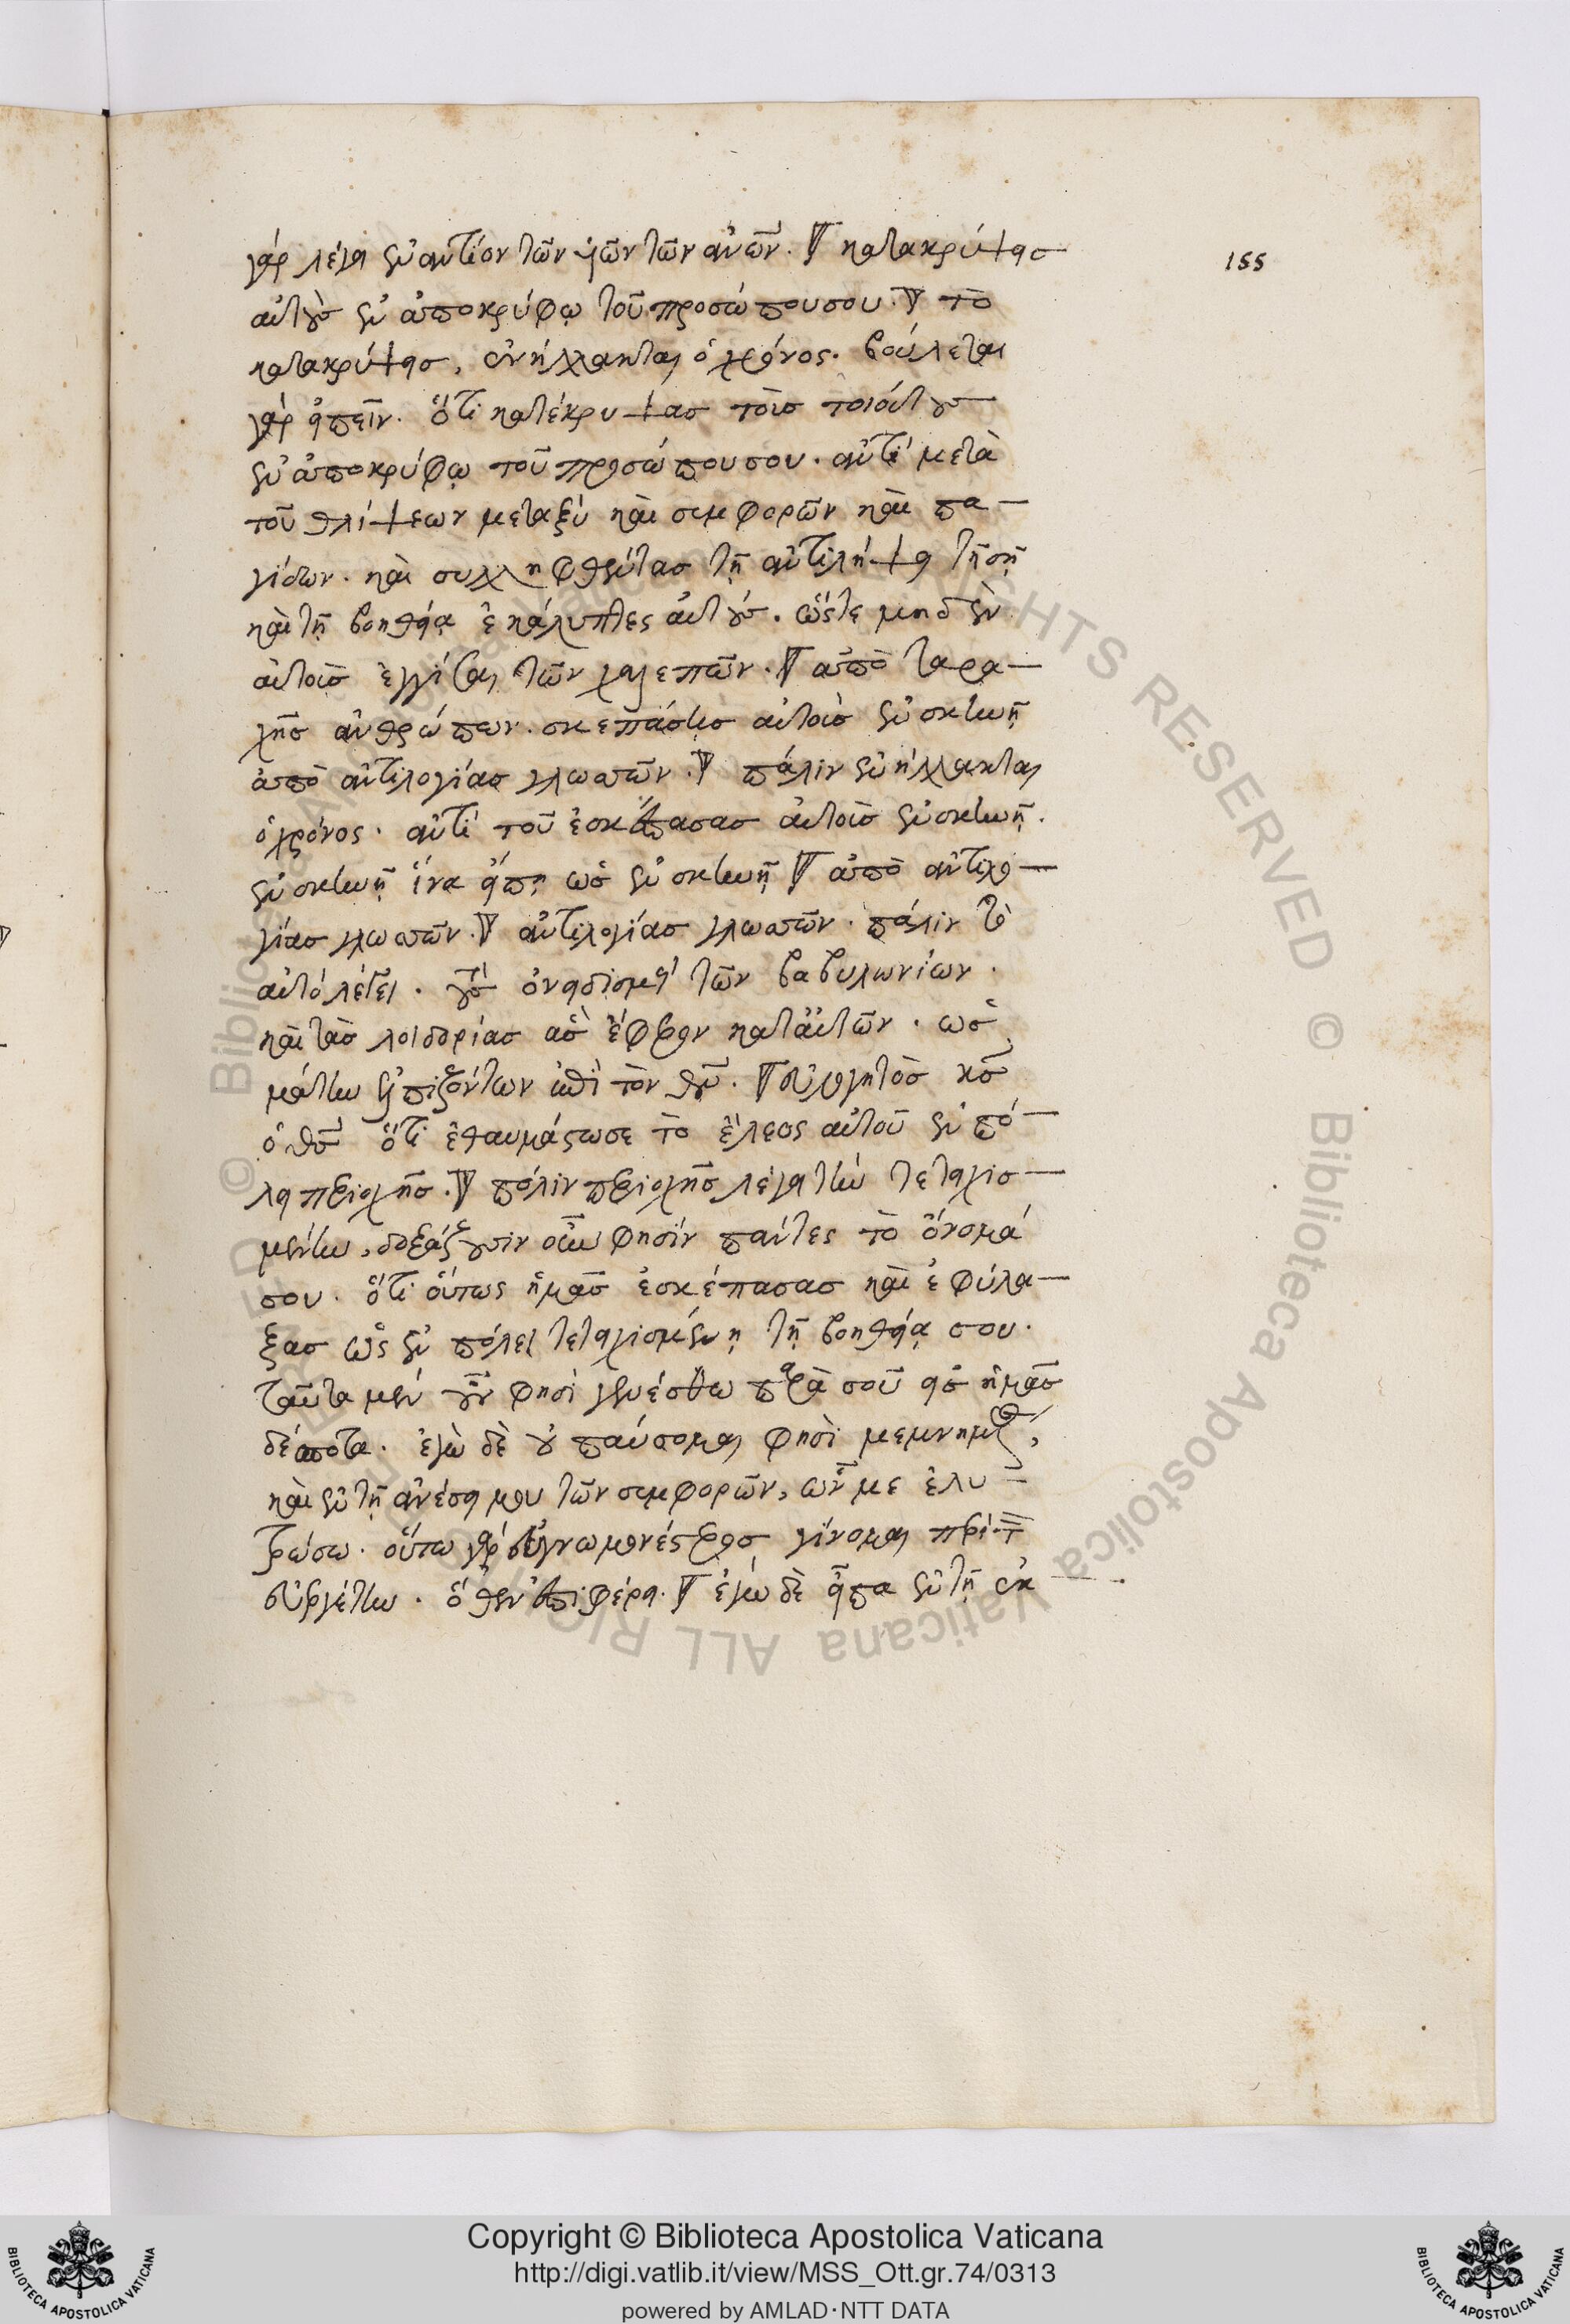 γάρ λέγει ἐναντίον τῶν υἱῶν τῶν ἀνῶν. κατακρύψεισ
αὐτοὺσ ἐν ἀποκρύφῳ τοῦ προσώπου σου. τὸ
κατακρύψεισ, ἐνήλλακται ὁ χρόνος. βούλεται
γὰρ εἰπεῖν. ὅτι κατέκρυψασ τοὺσ τοιούτουσ
ἐν ἀποκρύφῳ τοῦ προσώπου σου. ἀντὶ μετὰ
τοῦ θλίψεων μεταξὺ καὶ συμφορῶν καὶ πα-
γίδων. καὶ συλληφθέντασ τῇ ἀντιλήψει τῇ σῇ
καὶ τῇ βοηθείᾳ ἐκάλυπτες αὐτούσ. ὥστε μηδὲν
αὐτοῖσ ἐγγίσαι τῶν χαλεπῶν. ἀπὸ ταρα-
χῆσ ἀνθρώπων. σκεπάσεισ αὐτοὺσ ἐν σκηνῇ
ἀπὸ ἀντιλογίασ γλωσσῶν. πάλιν ἐνήλλακται
ὁ χρόνος. ἀντὶ τοῦ ἐσκέπασασ αὐτοὺσ ἐν σκηνῇ.
ἐν σκηνῇ ἵνα εἴπῃ ὡσ ἐν σκηνῇ ἀπὸ ἀντιλο-
γίασ γλωσσῶν. ἀντιλογίασ γλωσσῶν. πάλιν τὸ
αὐτὸ λέγει. τοὺσ ὀνειδισμοὺσ τῶν βαβυλωνίων.
καὶ τὰσ λοιδορίασ ἃσ ἔφερον κατ' αὐτῶν. ὡσ
μάτην ἐλπιζόντων ἐπὶ τὸν θν. εὐλογητὸσ κσ
ὁ θσ ὅτι ἐθαυμάστωσε τὸ ἔλεος αὐτοῦ ἐν πό-
λει περιοχῆσ. πόλιν περιοχῆσ λέγει τὴν τετειχισ-
μένην, δοξάζουσιν οὖν φησὶν πάντες τὸ ὄνομά
σου. ὅτι οὕτως ἡμᾶσ ἐσκέπασασ καὶ ἐφύλα-
ξασ ὡς ἐν πόλει τετειχισμένῃ τῇ βοηθείᾳ σου.
ταῦτα μὲν οὖν φησὶ γενέσθω παρὰ σοῦ εἰσ ἡμᾶσ
δέσποτα. ἐγὼ δὲ οὐ παύσομαι φησὶ μεμνημένος,
καὶ ἐν τῇ ἀνέσει μου τῶν συμφορῶν, ὧν με ἐλυ-
τρώσω. οὕτω γὰρ εὐγνωμονέστεροσ γίνομαι περὶ τ
εὐεργέτην. ὅθεν ἐπιφέρει. ἐγὼ δὲ εἶπα ἐν τῇ ἐκ-
155
Copyright © Biblioteca Apostolica Vaticana
http://digi.vatlib.it/view/MSS_Ott.gr.74/0313
powered by AMLAD·NTT DATA